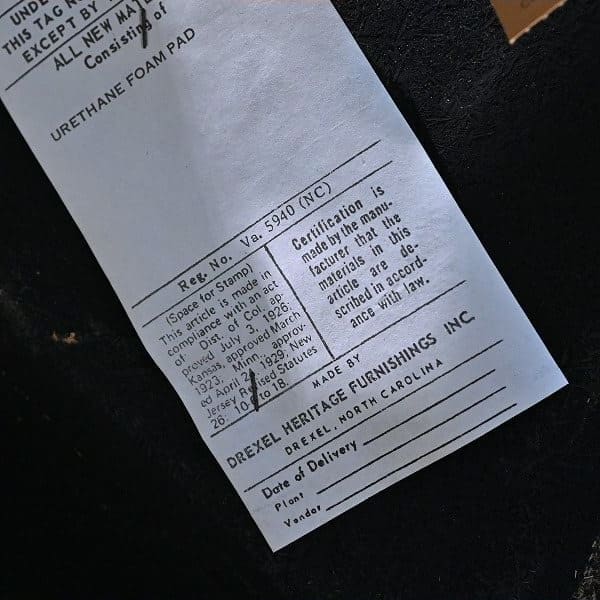 UNDE
THIS TAG N
EXCEPT BY
ALL NEW MATE
Consisting of
URETHANE FOAM PAD
Reg. No. Va. 5940 (NC)
(Space for Stamp)
This article is made in
compliance with an act
of Dist. of Col. ap-
proved July 3, 1926;
Kansas, approved March
1923, Minn., approv-
ed April 2, 1929. New
Jersey Revised Statutes
26: 10- to 18.
Certification is
made by the manu-
facturer that the
materials in this
article are de-
scribed in accord-
ance with law.
MADE BY
DREXEL HERITAGE FURNISHINGS INC.
DREXEL, NORTH CAROLINA
Date of Delivery
Plant
Vendor